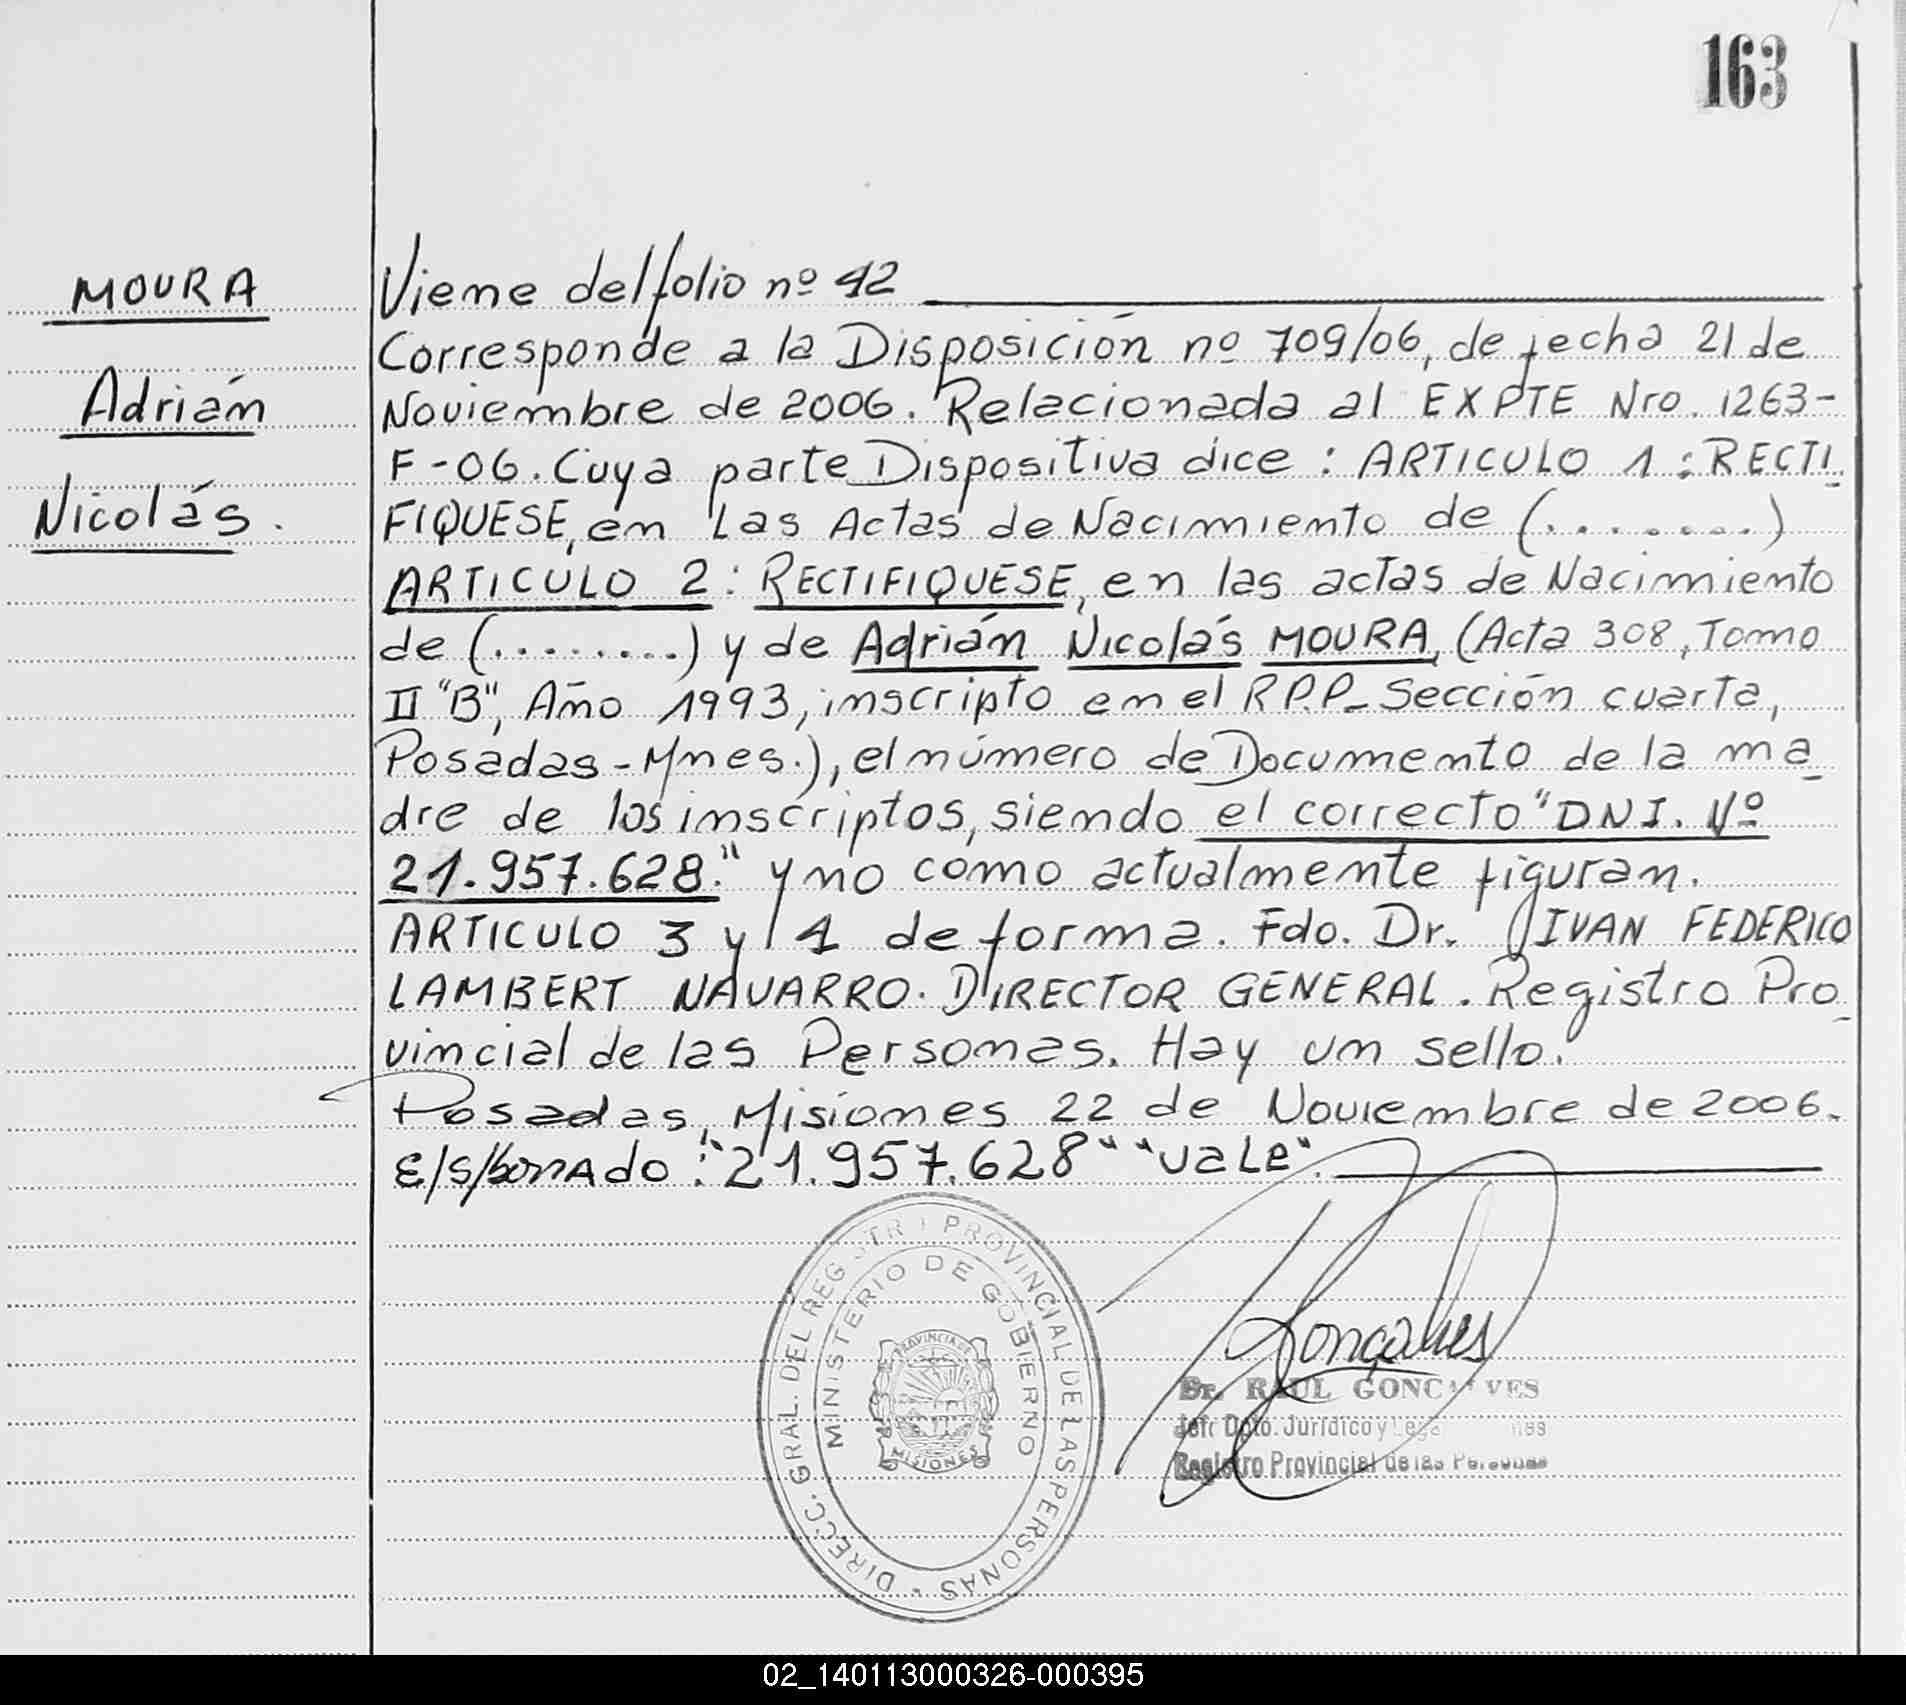 163
MOURA
Adrián
Nicolás.
Viene del folio nº 42
Corresponde a la Disposición nº 709/06, de fecha 21 de
Noviembre de 2006. Relacionada al EXPTE Nro. 1263-
F-06. Cuya parte Dispositiva dice: ARTICULO 1: RECTI_
FIQUESE, en Las Actas de Nacimiento de (........)
ARTICULO 2: RECTIFIQUESE, en las actas de Nacimiento
de (........) y de Adrián Nicolás MOURA, (Acta 308, Tomo
II "B", Año 1993, inscripto en el R.P.P_ Sección cuarta,
Posadas-Mnes.), el número de Documento de la ma_
dre de los inscriptos, siendo el correcto "DNI. Nº
21.957.628." y no como actualmente figuran.
ARTICULO 3 y 4 de forma. Fdo. Dr. IVAN FEDERICO
LAMBERT NAVARRO. DIRECTOR GENERAL. Registro Pro_
vincial de las Personas. Hay un sello.
Posadas, Misiones 22 de Noviembre de 2006.
E/S/borrado: "21.957.628" "Vale".
DIRECC. GRAL. DEL REGISTR PROVINCIAL DE LAS PERSONAS
MINISTERIO DE GOBIERNO
PROVINCIA
MISIONES
Gonçalves
Dr. RAUL GONCALVES
Jefe Dpto. Jurídico y
Registro Provincial de las Personas
02_140113000326-000395